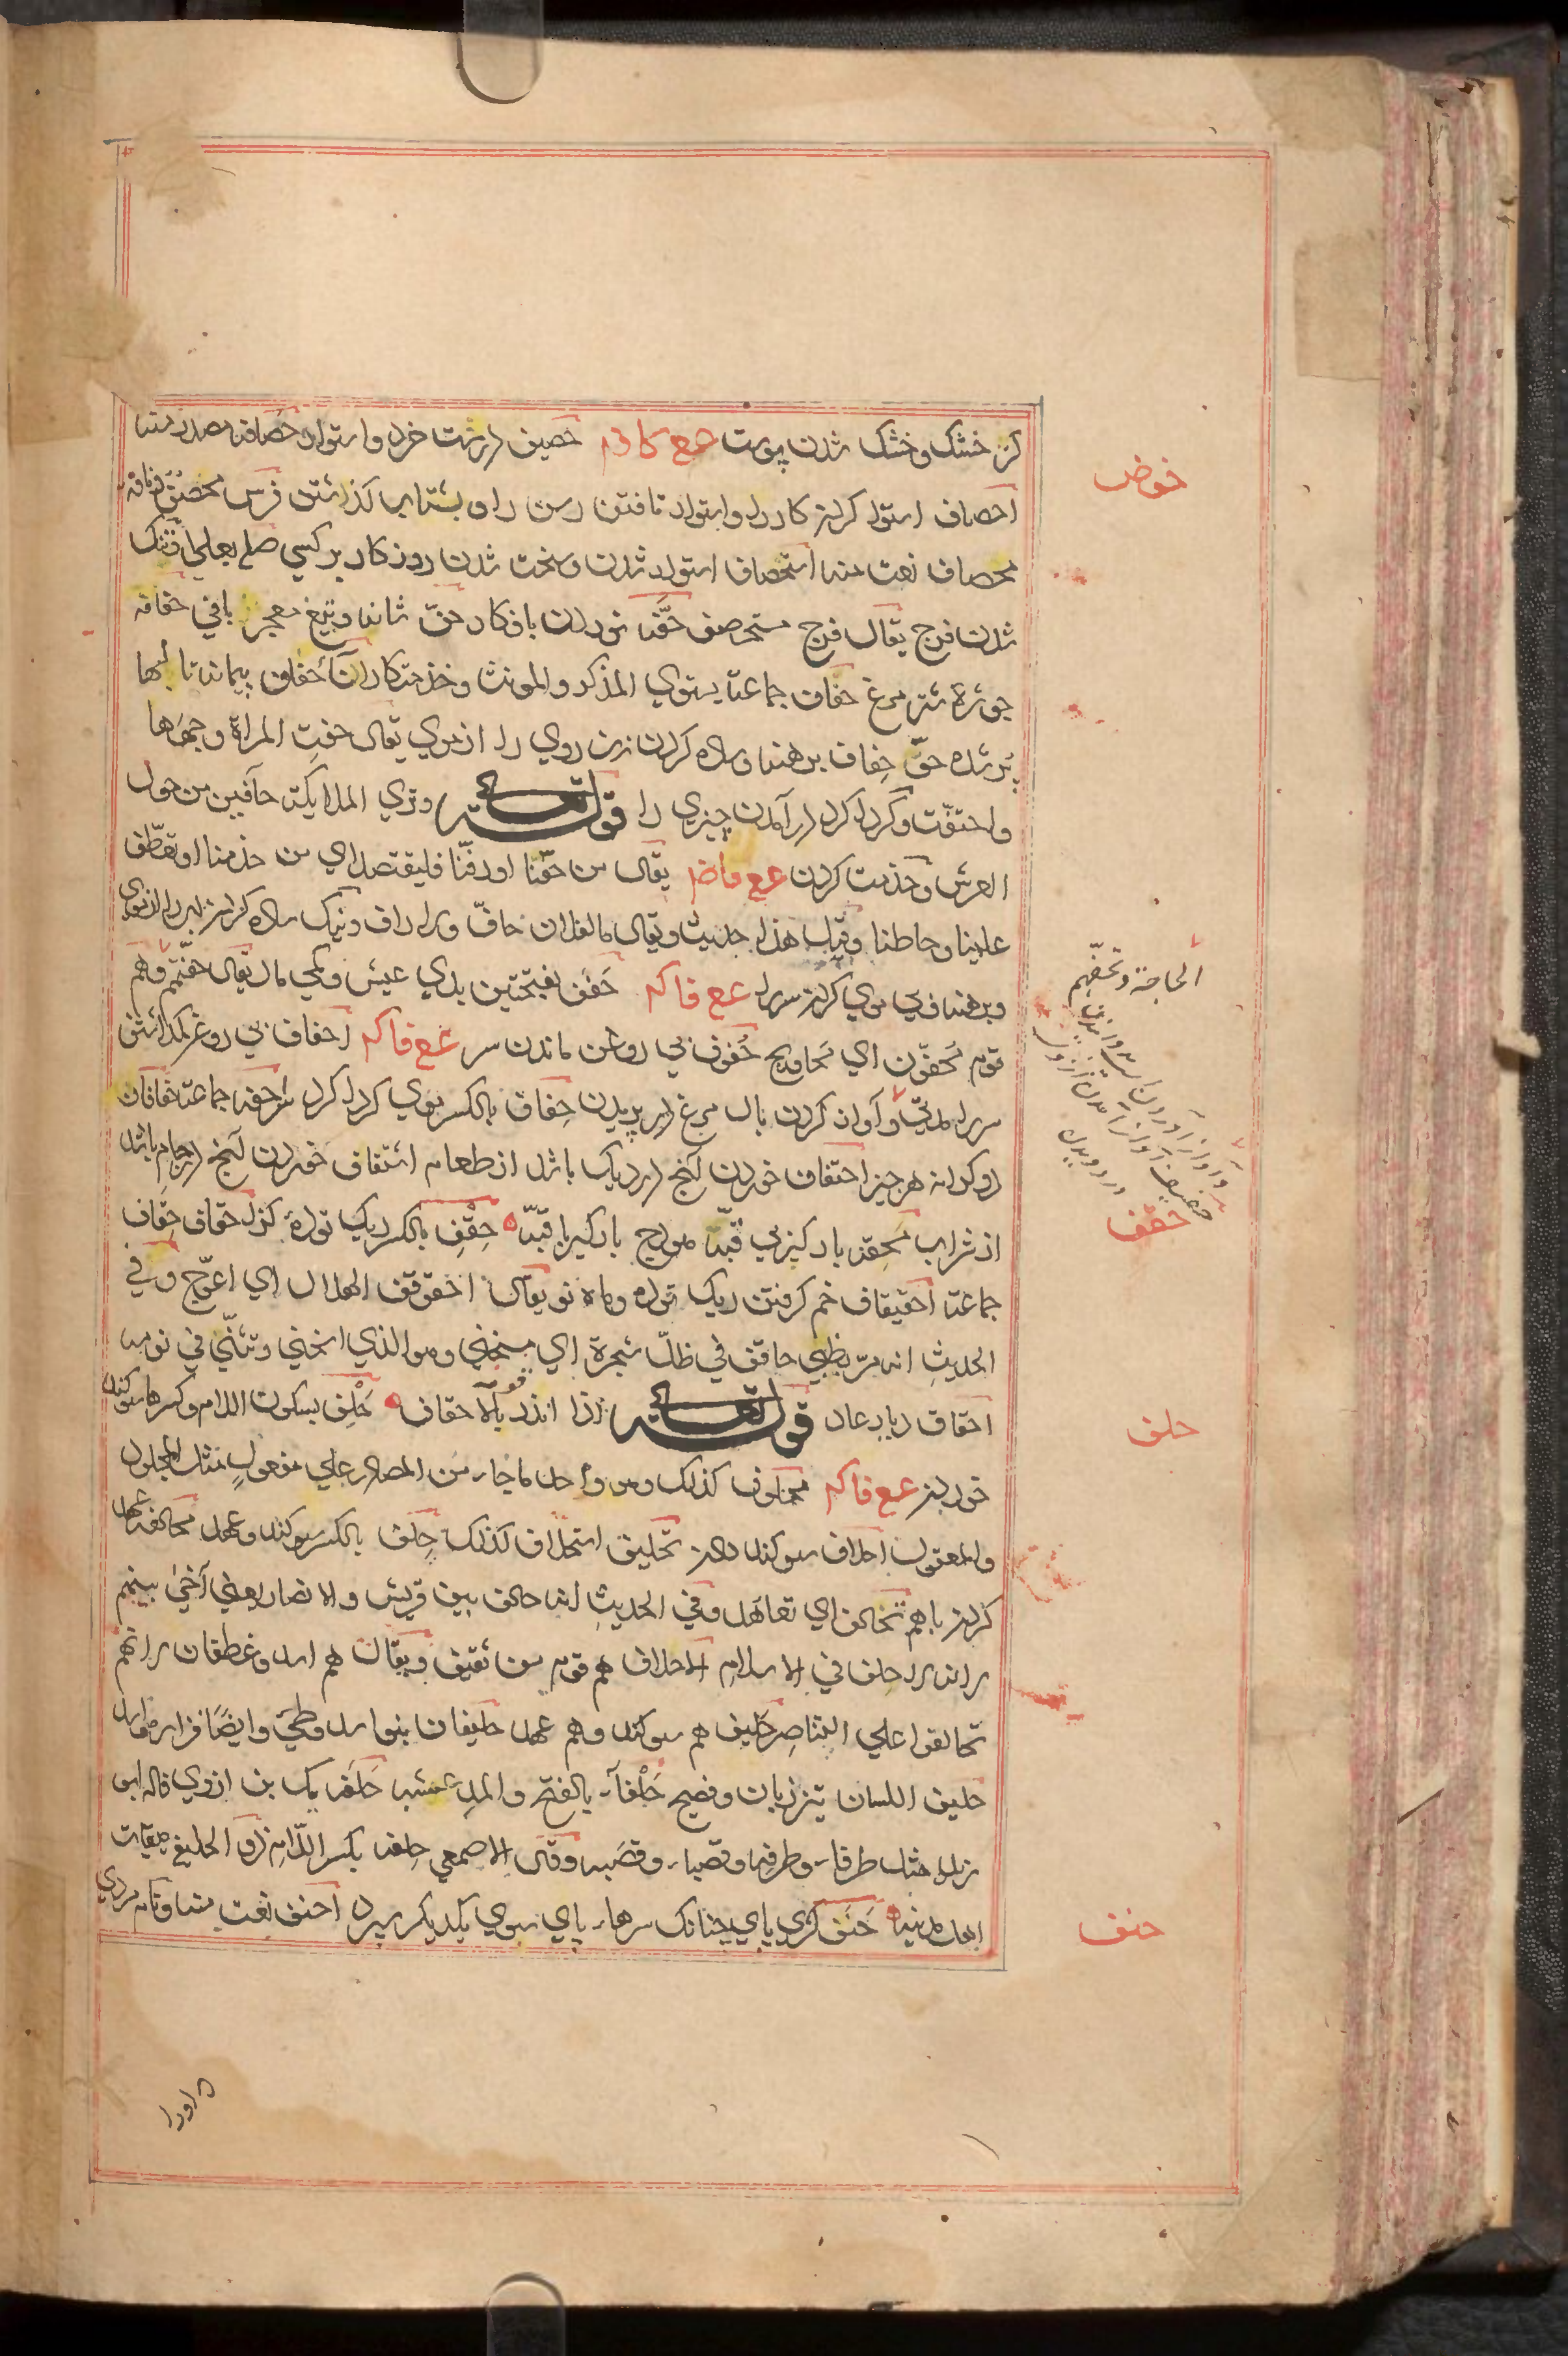 کردن خشک و خشک شدن پوست عع کا وم حصیف درشت خرد و استوار حصافه مصدر منه
احصاف استوار کردن کار را و استوار تافتن رسن را و بشتاب گذاشتن فرس محصف و ناقه
محصاف نعت منه استحصاف استوار شدن و سخت شدن روزکار بر کسی صله بعلی و تنک
شدن فرج یقال فرج مستحصف حفه نوردن بافکار حف شانه و تیغ
جوزه شتر مرغ حفاف جماعة یستوی المذکر و المونث و خذمتکاران حفاف پیمانه تا لبها
پر شده حف حفاف برهنه و ساده کردن زن روی را از موی یقال حفت المراة وجهها
واحتفت و کرد کرد در آمدن چیزی را قوله تعالی وتری الملایکة حافین من حول
العرش و خذمت کردن عع فا ضم یقال من حفنا او رفنا فلیقتصد ای من خدمنا او تعطف
علینا وحاطنا و قیل هذا حدیث ویقال ما لفلان حاف ولا راف و نیک ساده کردن
و برهنه و بی موی کردن سر را عع فا کم حفف بفتحتین بدی عیش و کمی مال یقال حفتهم وهم
قوم محفون ای محاویج حفوف بی روغن ماندن سر عع فا کم احفاف بی روغن گذاشتن
سر را مدتی و آواز کردن بال مرغ در پریدن حفاف بالکسر موی کرد کرد سر احفه جماعة حفافان
دو کرانه هر چیز احتفاف خوردن آنچ در دیک باشد از طعام اشتفاف خوردن آنچ در جام باشد
از شراب محفه بارکیر بی قبه هودج بارکیر با قبه حقف بالکسر ریک توده کژ احقاف حقاف
جماعة احقیقاف خم کرفتن ریک توده و ماه نو یقال احقوقف الهلال ای اعوج و فی
الحدیث انه مر بظبی حاقف فی ظل شجرة ای منحنی و هو الذی انحنی و تثنی فی نومه
احقاف دیار عاد قوله تعالی اذ انذر قومه بالاحقاف حلف بسکون اللام و کسرها سوکند
خوردن عع فا کم محلوف کذلک و هو واحد ما جاء من المصادر علی مفعول مثل المجلود
والمعقول احلاف سوکند دادن تحلیف استحلاف کذلک حلف بالکسر سوکند و عهد محالفه عهد
کردن با هم تحالف ای تعاهد و فی الحدیث انه حالف بین قریش والانصار یعنی آخی بینهم
لانه لا حلف فی الاسلام الاحلاف هم قوم من ثقیف و یقال هم اسد و غطفان لانهم
تحالفوا علی التناصر حلیف هم سوکند و هم عهد حلیفان بنو اسد و طی و ایضا فزاره و اسد
حلیف اللسان تیز زبان و فصیح حلفاء بالفتح والمد عشب حلفه یک بن ازوی قاله ابو
زید مثل طرفاء و طرفه و قصباء و قصبه و قال الاصمعی حلفه بکسر اللام ذو الحلیفه میقات
اهل مدینه حنف کژی پای چنانک سرهاء پای سوی یکدیکر بود احنف نعت منه و نام مردی
خوض
الحاجة وتحفهم
حقف
حلف
حنف